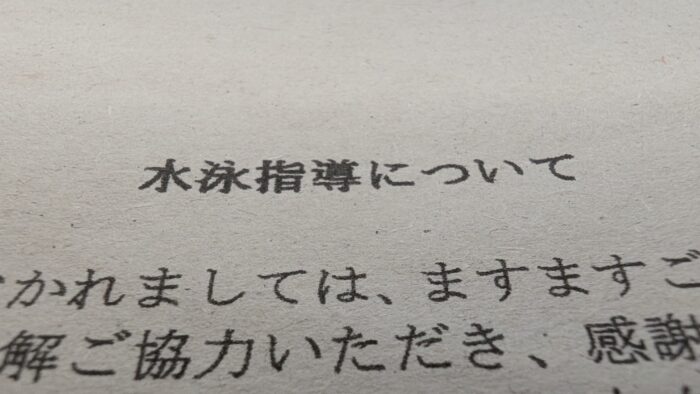 水泳指導について
かれましては、ますますご
解ご協力いただき、感謝